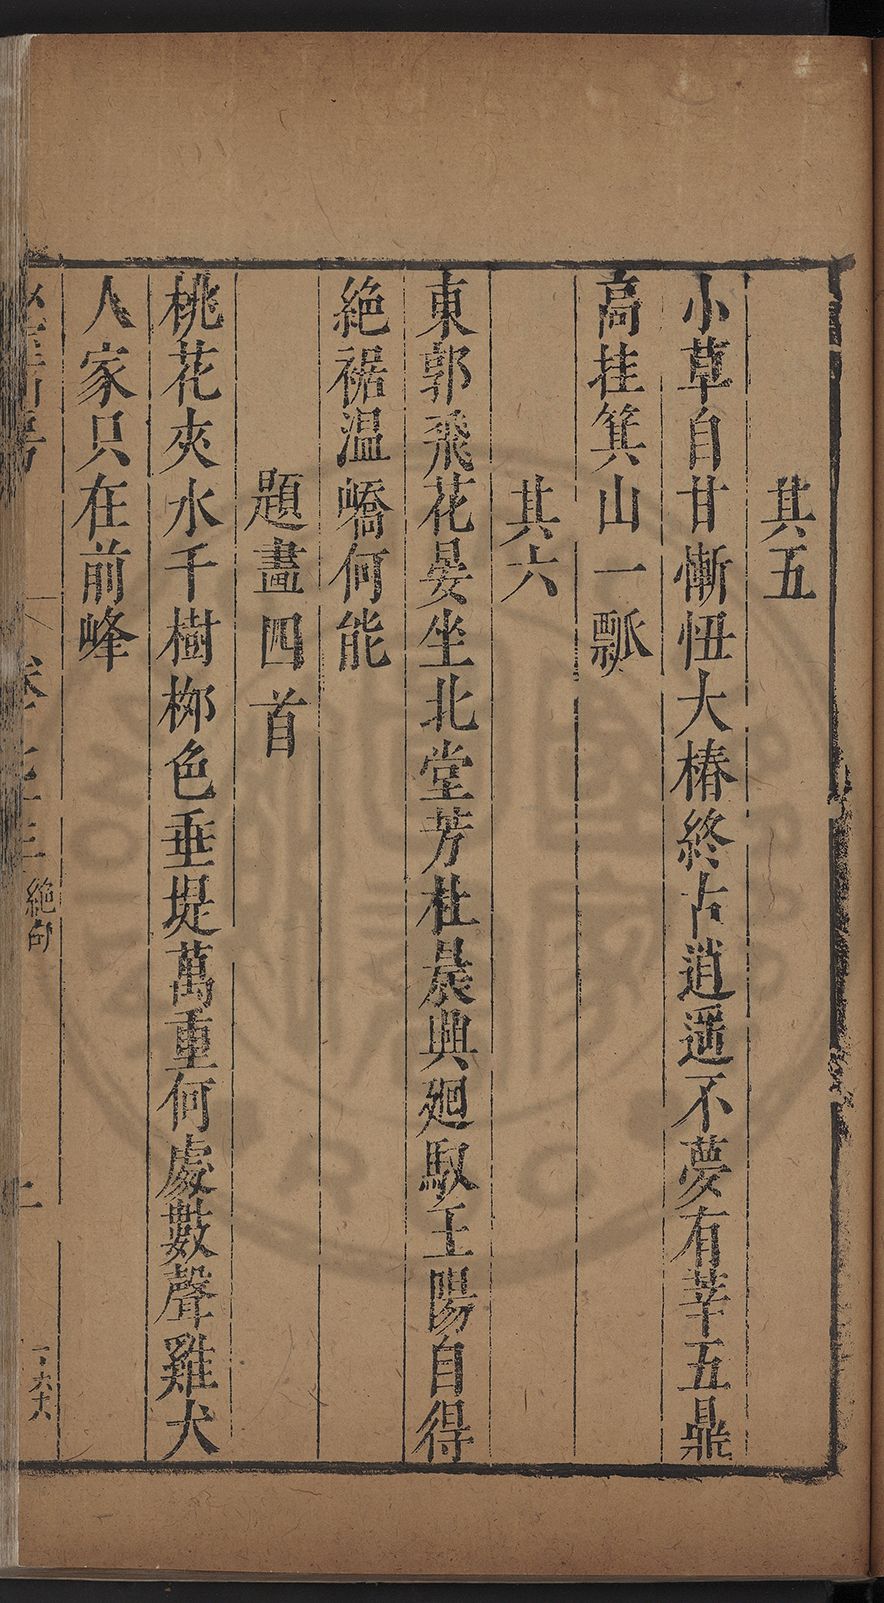 其五
小草自甘慚忸大椿終古逍遥不夢有莘五鼎
高挂箕山一瓢
其六
東郭飛花晏坐北堂芳杜晨興廻馭王陽自得
絶裾温嶠何能
題畫四首
桃花夾水千樹桞色垂堤萬重何處數聲雞犬
人家只在前峰
絶句